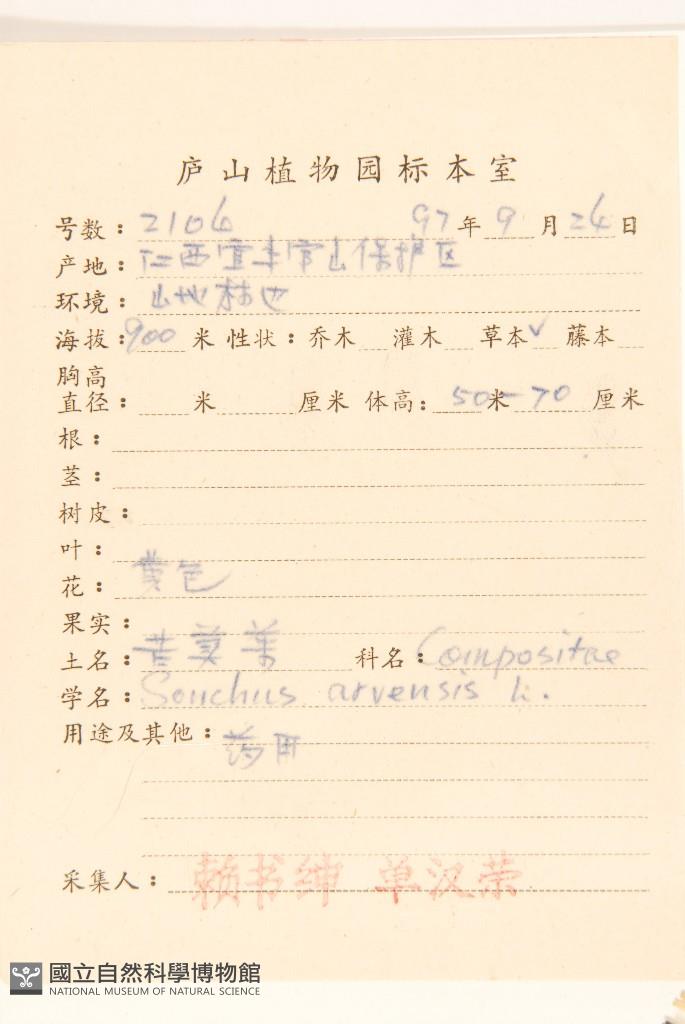 庐山植物园标本室
号数：2106 97年9月26日
产地：江西宜丰官山保护区
环境：山地林边
海拔：900米 性状：乔木 灌木 草本✓ 藤本
胸高
直径： 米 厘米 体高：50米-70厘米
根：
茎：
树皮：
叶：
花：黄色
果实：
土名：苦荬菜 科名：Compositae
学名：Sonchus arvensis L.
用途及其他：药用
采集人：赖书绅 单汉荣
國立自然科學博物館
NATIONAL MUSEUM OF NATURAL SCIENCE